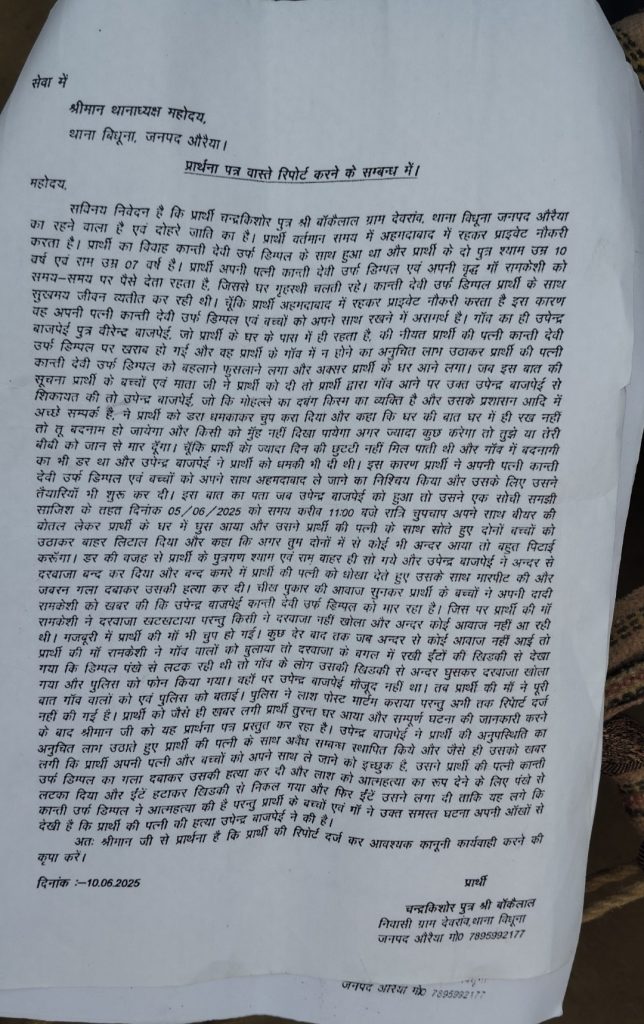 सेवा में
श्रीमान थानाध्यक्ष महोदय,
थाना विधूना, जनपद औरैया।
प्रार्थना पत्र वास्ते रिपोर्ट करने के सम्बन्ध में।
महोदय,
सविनय निवेदन है कि प्रार्थी चन्द्रकिशोर पुत्र श्री बाँकैलाल ग्राम देवरांव, थाना विधूना जनपद औरैया
का रहने वाला है एवं दोहरे जाति का है। प्रार्थी वर्तमान समय में अहमदाबाद में रहकर प्राइवेट नौकरी
करता है। प्रार्थी का विवाह कान्ती देवी उर्फ डिम्पल के साथ हुआ था और प्रार्थी के दो पुत्र श्याम उम्र 10
वर्ष एवं राम उम्र 07 वर्ष है। प्रार्थी अपनी पत्नी कान्ती देवी उर्फ डिम्पल एवं अपनी वृद्ध माँ रामकेशी को
समय-समय पर पैसे देता रहता है, जिससे घर गृहस्थी चलती रहे। कान्ती देवी उर्फ डिम्पल प्रार्थी के साथ
सुखमय जीवन व्यतीत कर रही थी। चूँकि प्रार्थी अहमदाबाद में रहकर प्राइवेट नौकरी करता है इस कारण
वह अपनी पत्नी कान्ती देवी उर्फ डिम्पल एवं बच्चों को अपने साथ रखने में असमर्थ है। गाँव का ही उपेन्द्र
बाजपेई पुत्र वीरेन्द बाजपेई, जो प्रार्थी के घर के पास में ही रहता है, की नीयत प्रार्थी की पत्नी कान्ती देवी
उर्फ डिम्पल पर खराब हो गई और वह प्रार्थी के गाँव में न होने का अनुचित लाभ उठाकर प्रार्थी की पत्नी
कान्ती देवी उर्फ डिम्पल को बहलाने फुसलाने लगा और अक्सर प्रार्थी के घर आने लगा। जब इस बात की
सूचना प्रार्थी के बच्चों एवं माता जी ने प्रार्थी को दी तो प्रार्थी द्वारा गाँव आने पर उक्त उपेन्द्र बाजपेई से
शिकायत की तो उपेन्द्र बाजपेई, जो कि मोहल्ले का दबंग किस्म का व्यक्ति है और उसके प्रशासन आदि में
अच्छे सम्पर्क है, ने प्रार्थी को डरा धमकाकर चुप करा दिया और कहा कि घर की बात घर में ही रख नहीं
तो तू बदनाम हो जायेगा और किसी को मुँह नहीं दिखा पायेगा अगर ज्यादा कुछ करेगा तो तुझे या तेरी
बीबी को जान से मार दूँगा। चूँकि प्रार्थी का ज्यादा दिन की छुटटी नहीं मिल पाती थी और गाँव में बदनागी
का भी डर था और उपेन्द्र बाजपेई ने प्रार्थी को धमकी भी दी थी। इस कारण प्रार्थी ने अपनी पत्नी कान्ती
देवी उर्फ डिम्पल एवं बच्चों को अपने साथ अहमदाबाद ले जाने का निश्चिय किया और उसके लिए उसने
तैयारियां भी शुरू कर दी। इस बात का पता जब उपेन्द्र बाजपेई को हुआ तो उसने एक सोची समझी
साजिश के तहत दिनांक 05/06/2025 को समय करीव 11:00 बजे रात्रि चुपचाप अपने साथ बीयर की
वोतल लेकर प्रार्थी के घर में घुस आया और उसने प्रार्थी की पत्नी के साथ सोते हुए दोनों बच्चों को
उठाकर बाहर लिटाल दिया और कहा कि अगर तुम दोनों में से कोई भी अन्दर आया तो बहुत पिटाई
करूँगा। डर की वजह से प्रार्थी के पुत्रगण श्याम एवं राम बाहर ही सो गये और उपेन्द्र बाजपेई ने अन्दर से
दरवाजा बन्द कर दिया और बन्द कमरे में प्रार्थी की पत्नी को धोखा देते हुए उसके साथ मारपीट की और
जबरन गला दबाकर उसकी हत्या कर दी। चीख पुकार की आवाज सुनकर प्रार्थी के बच्चों ने अपनी दादी
रामकेशी को खबर की कि उपेन्द्र बाजपेई कान्ती देवी उर्फ डिम्पल को मार रहा है। जिस पर प्रार्थी की माँ
रामकेशी ने दरवाजा खटखटाया परन्तु किसी ने दरवाजा नहीं खोला और अन्दर कोई आवाज नहीं आ रही
थी। मजबूरी में प्रार्थी की माँ भी चुप हो गई। कुछ देर बाद तक जब अन्दर से कोई आवाज नहीं आई तो
प्रार्थी की माँ रामकेशी ने गाँव वालों को बुलाया तो दरवाजा के बगल में रखी ईंटों की खिडकी से देखा
गया कि डिम्पल पंखे से लटक रही थी तो गाँव के लोग उसकी खिडकी से अन्दर घुसकर दरवाजा खोला
गया और पुलिस को फोन किया गया। वहाँ पर उपेन्द्र बाजपेई मौजूद नहीं था। तब प्रार्थी की माँ ने पूरी
बात गाँव वालों को एवं पुलिस को बताई। पुलिस ने लाश पोस्ट मार्टम कराया परन्तु अभी तक रिपोर्ट दर्ज
नहीं की गई है। प्रार्थी को जैसे ही खबर लगी प्रार्थी तुरन्त घर आया और सम्पूर्ण घटना की जानकारी करने
के बाद श्रीमान जी को यह प्रार्थना पत्र प्रस्तुत कर रहा है। उपेन्द्र बाजपेई ने प्रार्थी की अनुपस्थिति का
अनुचित लाभ उठाते हुए प्रार्थी की पत्नी के साथ अवैध सम्बन्ध स्थापित किये और जैसे ही उसको खबर
लगी कि प्रार्थी अपनी पत्नी और बच्चों को अपने साथ ले जाने को इच्छुक है, उसने प्रार्थी की पत्नी कान्ती
उर्फ डिम्पल का गला दबाकर उसकी हत्या कर दी और लाश को आत्महत्या का रूप देने के लिए पंखे से
लटका दिया और ईंटे हटाकर खिडकी से निकल गया और फिर ईंटें उसने लगा दी ताकि यह लगे कि
कान्ती उर्फ डिम्पल ने आत्महत्या की है परन्तु प्रार्थी के बच्चों एवं माँ ने उक्त समस्त घटना अपनी आँखों से
देखी है कि प्रार्थी की पत्नी की हत्या उपेन्द्र बाजपेई ने की है।
अतः श्रीमान जी से प्रार्थना है कि प्रार्थी की रिपोर्ट दर्ज कर आवश्यक कानूनी कार्यवाही करने की
कृपा करें।
दिनांक :–10.06.2025 प्रार्थी
चन्द्रकिशोर पुत्र श्री बाँकैलाल
निवासी ग्राम देवरांव,थाना विधूना
जनपद औरैया मो0 7895992177
जनपद औरैया मो0 7895992177